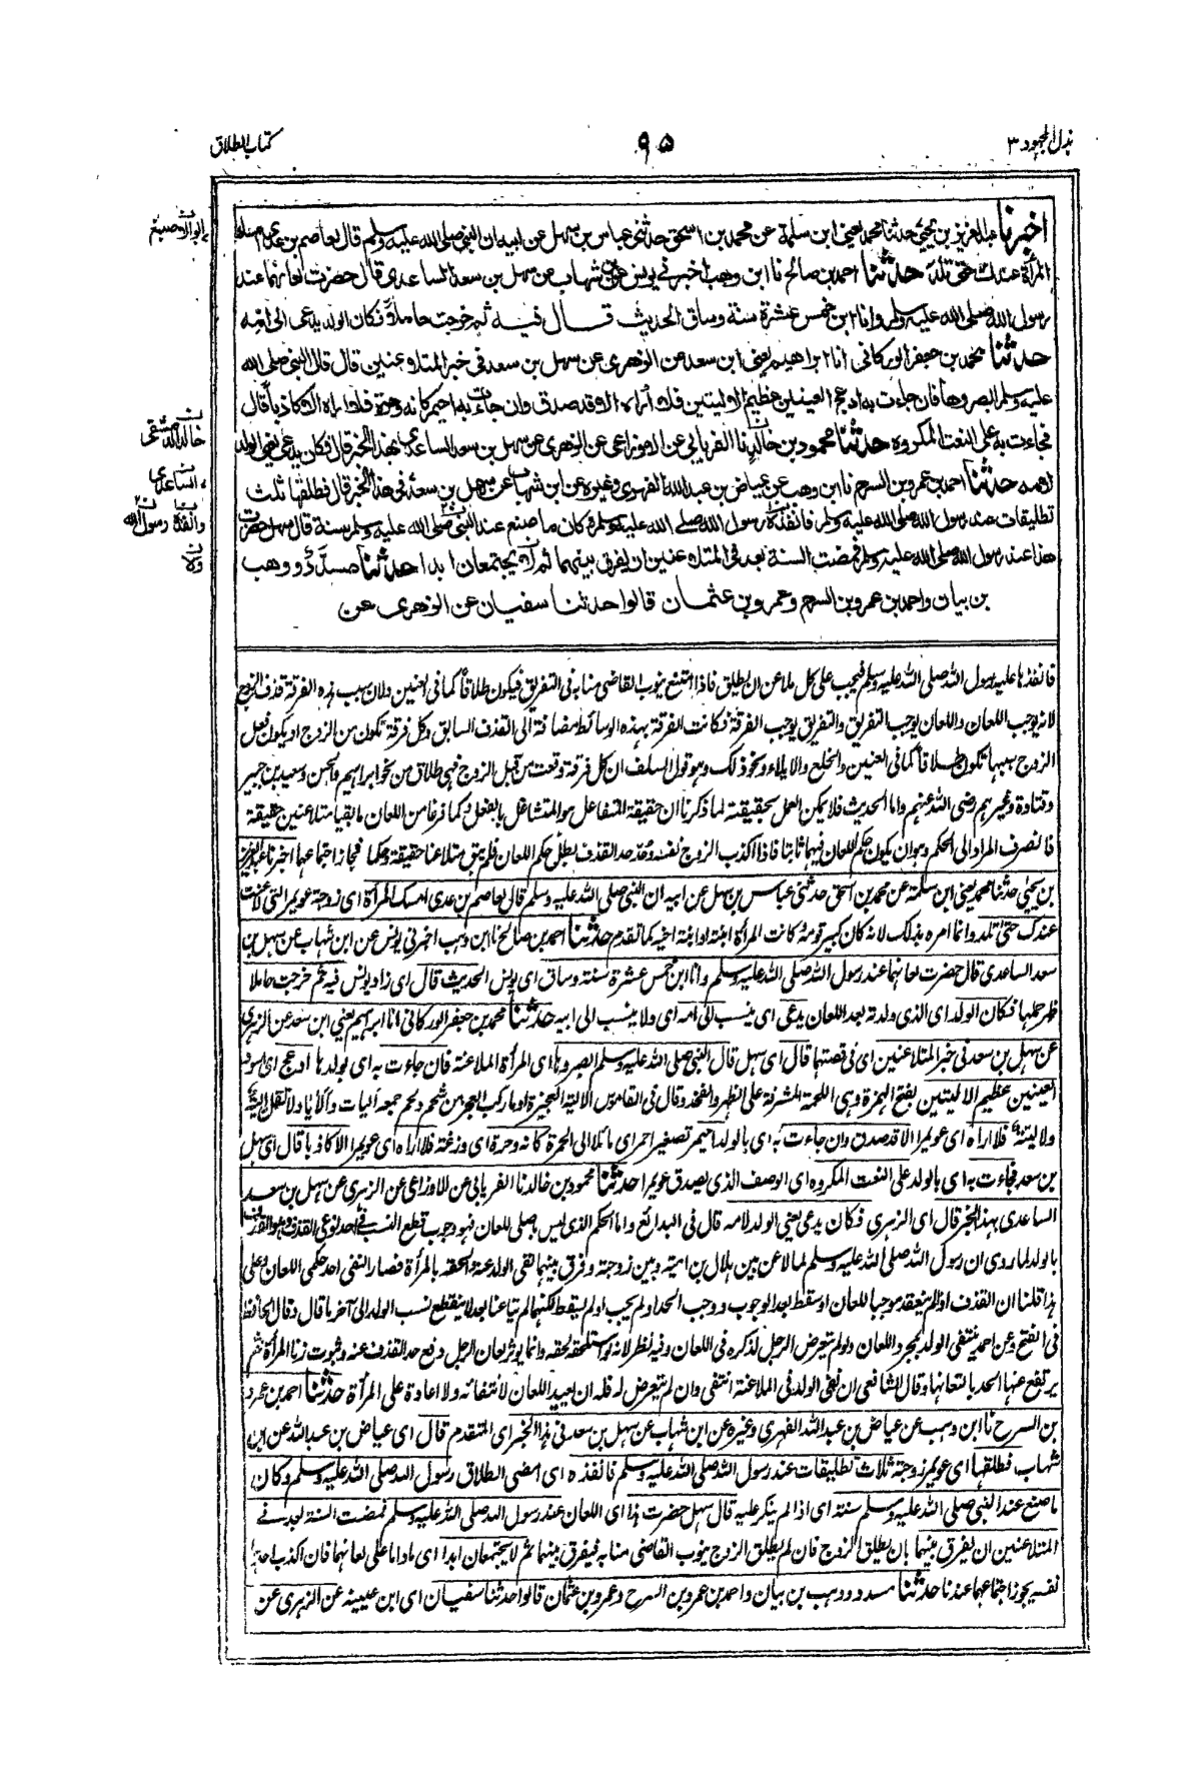 بذل المجهود ٣
٩٥
كتاب الطلاق
اخبرنا عبد العزيز بن يحيى حدثنا محمد يعني ابن سلمة عن محمد بن اسحق حدثني عباس بن سهل عن ابيه ان النبي صلى الله عليه وسلم قال لعاصم بن عدي امسك
المرأة عندك حتى تلد حدثنا احمد بن صالح نا ابن وهب اخبرني يونس عن ابن شهاب عن سهل بن سعد الساعدي قال حضرت لعانهما عند
رسول الله صلى الله عليه وسلم وانا ابن خمس عشرة سنة وساق الحديث قال فيه ثم خرجت حاملا فكان الولد يدعى الى امه
حدثنا محمد بن جعفر الوركاني انا ابراهيم يعني ابن سعد عن الزهري عن سهل بن سعد في خبر المتلاعنين قال قال النبي صلى الله
عليه وسلم ابصروها فان جاءت به ادعج العينين عظيم الاليتين فلا أراه الا قد صدق وان جاءت به احيمر كانه وحرة فلا اراه الا كاذبا قال
فجاءت به على النعت المكروه حدثنا محمود بن خالد نا الفريابي عن الاوزاعي عن الزهري عن سهل بن سعد الساعدي بهذا الخبر قال فكان يدعى يعني الولد
لامه حدثنا احمد بن عمرو بن السرح نا ابن وهب عن عياض بن عبد الله الفهري وغيره عن ابن شهاب عن سهل بن سعد في هذا الخبر قال فطلقها ثلث
تطليقات عند رسول الله صلى الله عليه وسلم فانفذه رسول الله صلى الله عليه وسلم فكان ما صنع عند النبي صلى الله عليه وسلم سنة قال سهل حضرت
هذا عند رسول الله صلى الله عليه وسلم فمضت السنة بعد في المتلاعنين ان يفرق بينهما ثم لا يجتمعان ابدا حدثنا مسدد ووهب
بن بيان واحمد بن عمرو بن السرح وعمرو بن عثمان قالوا حدثنا سفيان عن الزهري عن
خالد الدمشقي
الساعدي
فانفذها عليه رسول الله صلى الله عليه وسلم فيجب على كل ملاعن ان يطلق فاذا امتنع ينوب القاضي منابه في التفريق فيكون طلاقا كما في العنين ولان سبب هذه الفرقة قذف الزوج
لانه يوجب اللعان واللعان يوجب التفريق والتفريق يوجب الفرقة فكانت الفرقة بهذه الوسائط مضافة الى القذف السابق وكل فرقة تكون من الزوج او يكون فعل
الزوج سببها تكون طلاقا كما في العنين والخلع والايلاء ونحو ذلك وهو قول السلف ان كل فرقة وقعت من قبل الزوج فهي طلاق من نحو ابراهيم والحسن وسعيد بن جبير
وقتادة وغيرهم رضي الله عنهم واما الحديث فلا يمكن العمل بحقيقته لما ذكرنا ان حقيقة المتفاعل هو المتشاغل بالفعل وكما فرغا من اللعان ما بقيا متلاعنين حقيقة
فانصرف المراد الى الحكم وهو ان يكون حكم اللعان فيهما ثابتا فاذا اكذب الزوج نفسه وحد حد القذف بطل حكم اللعان فلم يبق متلاعنا حقيقة وحكما فجاز اجتماعهما اخبرنا عبد العزيز
بن يحيى حدثنا محمد يعني ابن سلمة عن محمد بن اسحق حدثني عباس بن سهل عن ابيه ان النبي صلى الله عليه وسلم قال لعاصم بن عدي امسك المرأة اى زوجة عويمر التي لاعنت
عندك حتى تلد وانما امره بذلك لانه كان كبير قومه وكانت المرأة ابنته او ابنة اخيه كما تقدم حدثنا احمد بن صالح نا ابن وهب اخبرني يونس عن ابن شهاب عن سهل بن
سعد الساعدي قال حضرت لعانهما عند رسول الله صلى الله عليه وسلم وانا ابن خمس عشرة سنة وساق اى يونس الحديث قال اى زاد يونس فيه ثم خرجت حاملا
ظهر حملها فكان الولد اى الذي ولدته بعد اللعان يدعى اى ينسب الى امه اى ولا ينسب الى ابيه حدثنا محمد بن جعفر الوركاني انا ابراهيم يعني ابن سعد عن الزهري
عن سهل بن سعد في خبر المتلاعنين اى في قصتهما قال اى سهل قال النبي صلى الله عليه وسلم ابصروها اى المرأة الملاعنة فان جاءت به اى بولدها ادعج اى اسود
العينين عظيم الاليتين بفتح الهمزة وهي اللحمة المشرفة على الظهر والفخذ وقال في القاموس الالية العجيزة او ما ركب العجز من شحم ولحم جمعه اليات وألايا ولا تقل الية
ولا لية فلا اراه اى عويمرا الا قد صدق وان جاءت به اى بالولد احيمر تصغير احمر اى مائلا الى الحمرة كانه وحرة اى وزغة فلا اراه اى عويمرا الا كاذبا قال اى سهل
بن سعد فجاءت به اى بالولد على النعت المكروه اى الوصف الذي يصدق عويمرا حدثنا محمود بن خالد نا الفريابي عن الاوزاعي عن الزهري عن سهل بن سعد
الساعدي بهذا الخبر قال اى الزهري فكان يدعى يعني الولد لامه قال في البدائع واما الحكم الذي ليس باصلي للعان فهو وجوب قطع النسب في احد نوعي القذف وهو القذف
بالولد لما روي ان رسول الله صلى الله عليه وسلم لما لاعن بين هلال بن امية وبين زوجته وفرق بينهما نفى الولد عنه والحقه بالمرأة فصار النفى احد حكمي اللعان وعلى
هذا قلنا ان القذف اذا لم ينعقد موجبا للعان او سقط بعد الوجوب ووجب الحد او لم يجب او لم يسقط لكنهما لم يتلاعنا بعد لا ينقطع نسب الولد الى آخر ما قال وقال الحافظ
في الفتح وعن احمد ينتفى الولد بمجرد اللعان ولو لم يتعرض الرجل لذكره في اللعان وفيه نظر لانه لو استلحقه لحقه وانما يؤثر لعان الرجل دفع حد القذف عنه وثبوت زنا المرأة ثم
يرتفع عنها الحد بالتعانها وقال الشافعي ان نفى الولد في الملاعنة انتفى وان لم يتعرض له فله ان يعيد اللعان لانتفائه ولا اعادة على المرأة حدثنا احمد بن عمرو
بن السرح نا ابن وهب عن عياض بن عبد الله الفهري وغيره عن ابن شهاب عن سهل بن سعد في هذا الخبر اى المتقدم قال اى عياض بن عبد الله عن ابن
شهاب فطلقها اى عويمر زوجته ثلاث تطليقات عند رسول الله صلى الله عليه وسلم فانفذه اى امضى الطلاق رسول الله صلى الله عليه وسلم وكان
ما صنع عند النبي صلى الله عليه وسلم سنة اى اذا لم ينكر عليه قال سهل حضرت هذا اى اللعان عند رسول الله صلى الله عليه وسلم فمضت السنة بعد في
المتلاعنين ان يفرق بينهما بان يطلق الزوج فان لم يطلق الزوج ينوب القاضي منابه فيفرق بينهما ثم لا يجتمعان ابدا اى ما داما على لعانهما فان اكذب احدهما
نفسه يجوز اجتماعهما عندنا حدثنا مسدد ووهب بن بيان واحمد بن عمرو بن السرح وعمرو بن عثمان قالوا حدثنا سفيان اى ابن عيينة عن الزهري عن